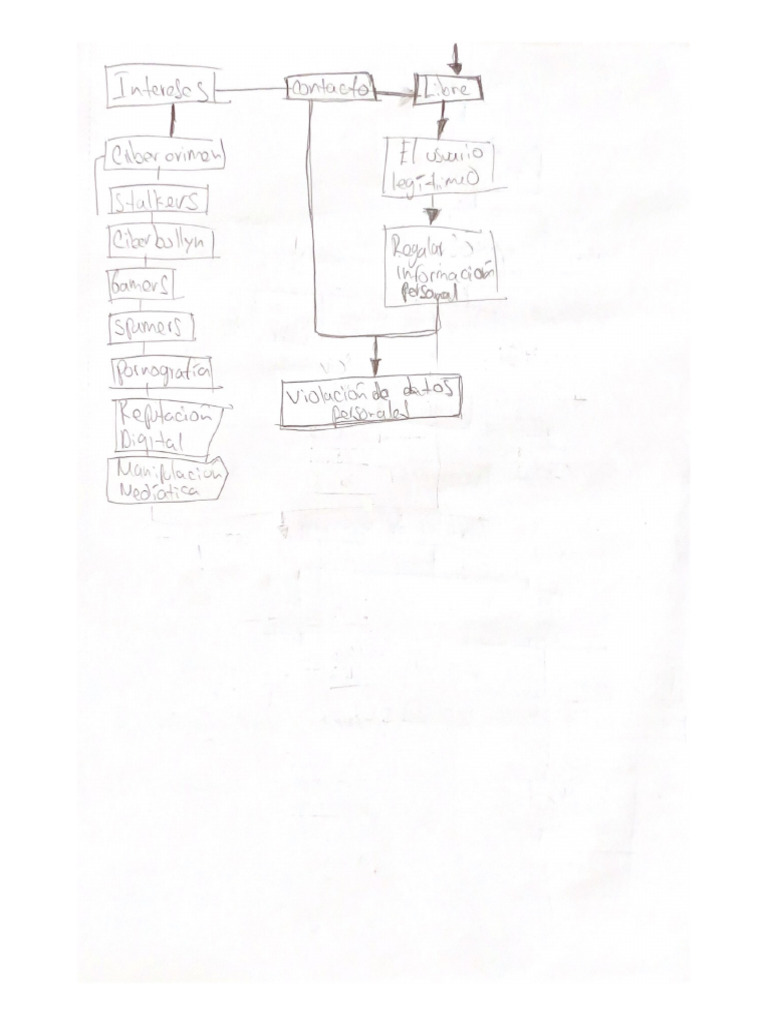 Intereses
Contacto
Libre
Cibercrimen
El usuario
legítimo
Stalkers
Ciberbullyn
Regalar
información
personal
Gamers
spamers
Pornografía
Violación de datos
personales
Reputación
Digital
Manipulación
Mediática